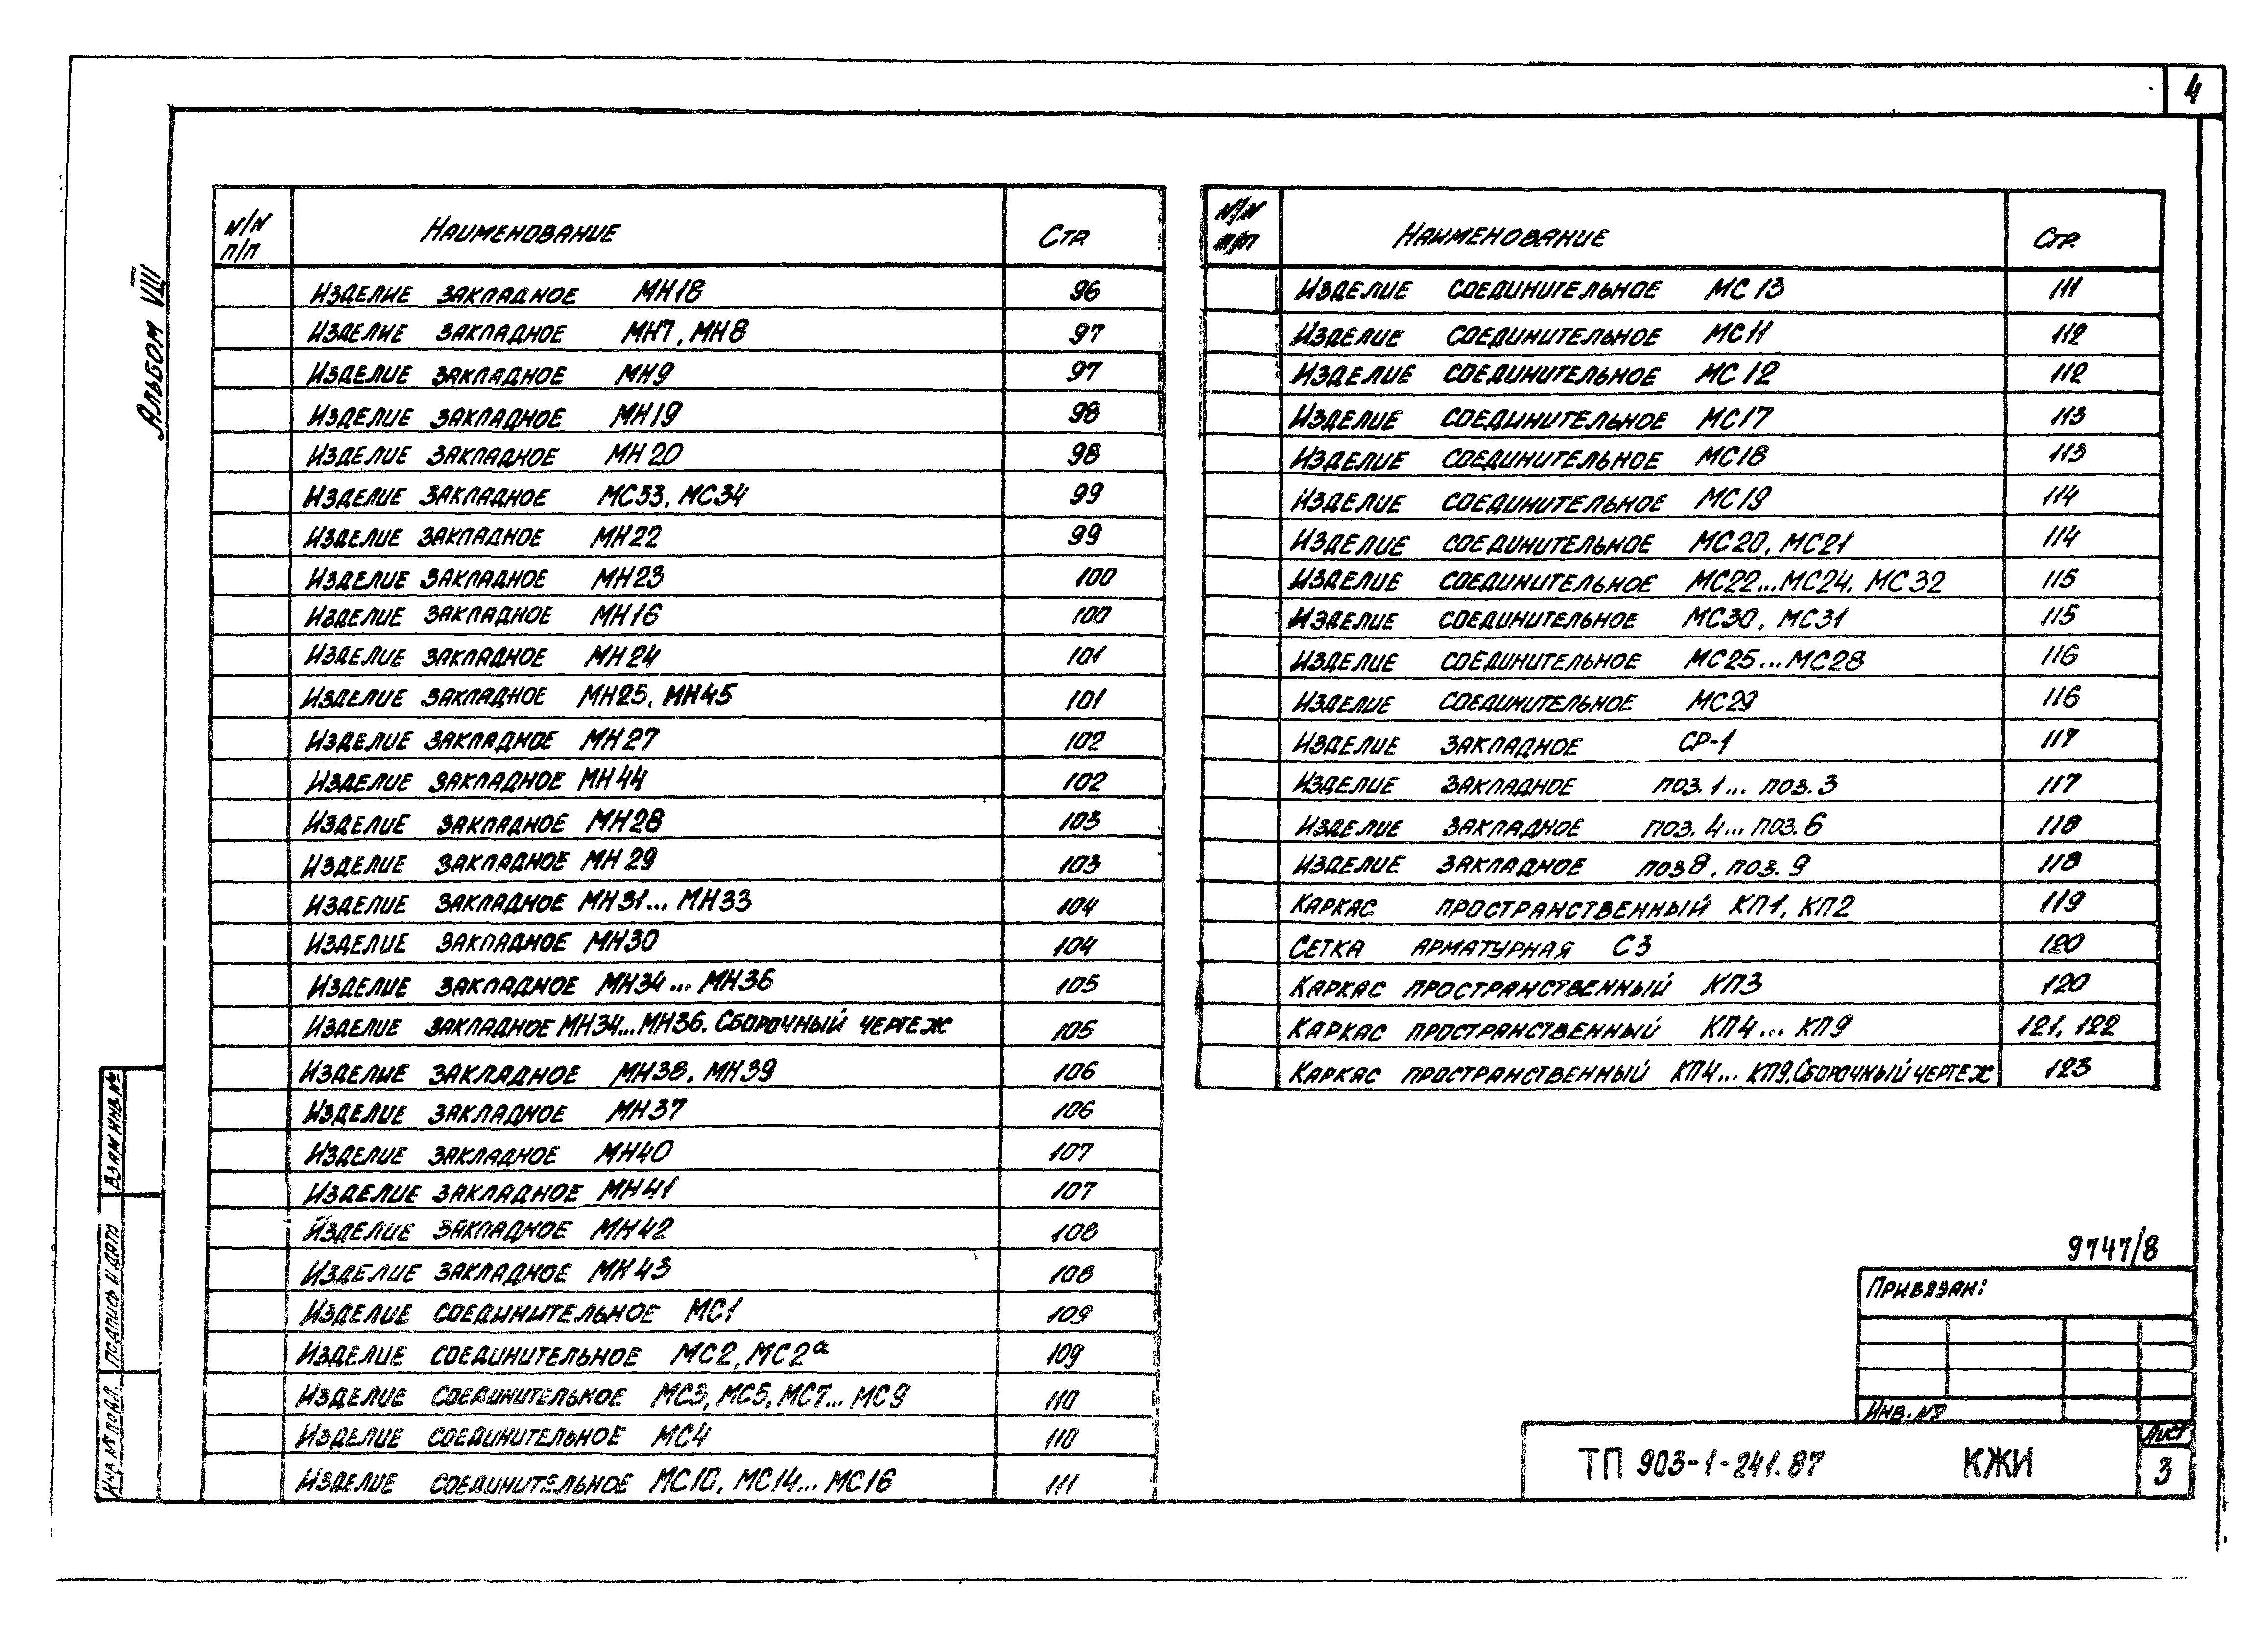 4
Альбом VIII
N/N п/п Наименование Стр.
Изделие закладное МН18 96
Изделие закладное МН7, МН8 97
Изделие закладное МН9 97
Изделие закладное МН19 98
Изделие закладное МН20 98
Изделие закладное МС33, МС34 99
Изделие закладное МН22 99
Изделие закладное МН23 100
Изделие закладное МН16 100
Изделие закладное МН24 101
Изделие закладное МН25, МН45 101
Изделие закладное МН27 102
Изделие закладное МН44 102
Изделие закладное МН28 103
Изделие закладное МН29 103
Изделие закладное МН31... МН33 104
Изделие закладное МН30 104
Изделие закладное МН34... МН36 105
Изделие закладное МН34...МН36. Сборочный чертеж 105
Изделие закладное МН38, МН39 106
Изделие закладное МН37 106
Изделие закладное МН40 107
Изделие закладное МН41 107
Изделие закладное МН42 108
Изделие закладное МН43 108
Изделие соединительное МС1 109
Изделие соединительное МС2, МС2а 109
Изделие соединительное МС3, МС5, МС7... МС9 110
Изделие соединительное МС4 110
Изделие соединительное МС10, МС14... МС16 111
N/N п/п Наименование Стр.
Изделие соединительное МС13 111
Изделие соединительное МС11 112
Изделие соединительное МС12 112
Изделие соединительное МС17 113
Изделие соединительное МС18 113
Изделие соединительное МС19 114
Изделие соединительное МС20, МС21 114
Изделие соединительное МС22...МС24, МС32 115
Изделие соединительное МС30, МС31 115
Изделие соединительное МС25...МС28 116
Изделие соединительное МС29 116
Изделие закладное СР-1 117
Изделие закладное поз.1... поз.3 117
Изделие закладное поз.4... поз.6 118
Изделие закладное поз8, поз.9 118
Каркас пространственный КП1, КП2 119
Сетка арматурная С3 120
Каркас пространственный КП3 120
Каркас пространственный КП4... КП9 121, 122
Каркас пространственный КП4... КП9. Сборочный чертеж 123
Взам инв. №
Подпись и дата
Инв № подл.
9747/8
Привязан:
Инв. №
ТП 903-1-241.87 КЖИ
Лист
3